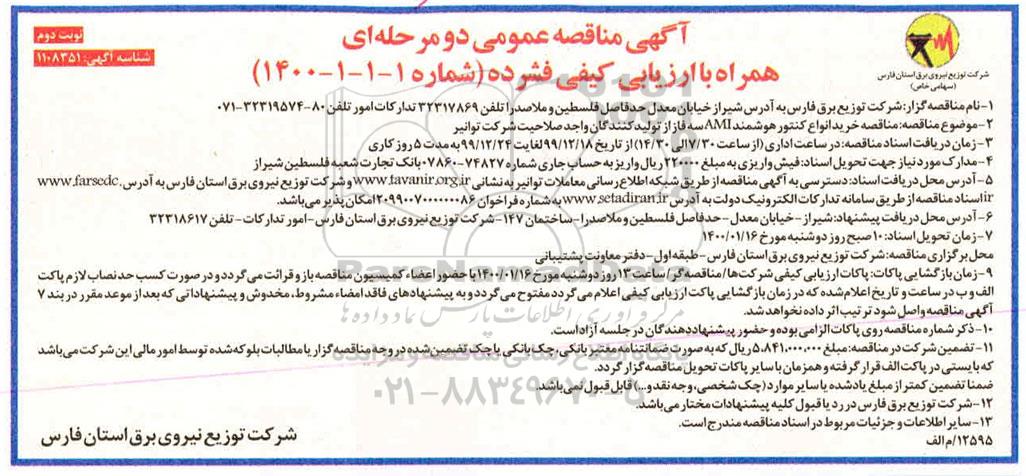 آگهی مناقصه عمومی دو مرحله‌ای
همراه با ارزیابی کیفی فشرده (شماره ۱-۱-۱-۱۴۰۰)
نوبت دوم
شناسه آگهی: ۱۱۰۸۳۵۱
شرکت توزیع نیروی برق استان فارس
(سهامی خاص)
۱-نام مناقصه گزار: شرکت توزیع برق فارس به آدرس شیراز خیابان معدل حدفاصل فلسطین و ملاصدرا تلفن ۳۲۳۱۷۸۶۹ تدارکات امور تلفن ۸۰-۳۲۳۱۹۵۷۴-۰۷۱
۲-موضوع مناقصه: مناقصه خرید انواع کنتور هوشمند AMI سه فاز از تولیدکنندگان واجد صلاحیت شرکت توانیر
۳-زمان دریافت اسناد مناقصه: در ساعت اداری (از ساعت ۷/۳۰ الی ۱۴/۳۰) از تاریخ ۹۹/۱۲/۱۸ لغایت ۹۹/۱۲/۲۴ به مدت ۵ روز کاری
۴-مدارک مورد نیاز جهت تحویل اسناد: فیش واریزی به مبلغ ۲۲۰۰۰۰ ریال واریز به حساب جاری شماره ۷۴۸۲۷-۰۷۸۶۰ بانک تجارت شعبه فلسطین شیراز
۵-آدرس محل دریافت اسناد: دسترسی به آگهی مناقصه از طریق شبکه اطلاع رسانی معاملات توانیر به نشانی www.tavanir.org.ir و شرکت توزیع نیروی برق استان فارس به آدرس www.farsedc.
ir اسناد مناقصه از طریق سامانه تدارکات الکترونیک دولت به آدرس www.setadiran.ir به شماره فراخوان ۲۰۹۹۰۰۷۰۰۰۰۰۰۰۸۶ امکان پذیر می‌باشد.
۶-آدرس محل دریافت پیشنهاد: شیراز-خیابان معدل-حدفاصل فلسطین و ملاصدرا-ساختمان ۱۴۷-شرکت توزیع نیروی برق استان فارس-امور تدارکات-تلفن ۳۲۳۱۸۶۱۷
۷-زمان تحویل اسناد: ۱۰ صبح روز دوشنبه مورخ ۱۴۰۰/۰۱/۱۶
محل برگزاری مناقصه: شرکت توزیع نیروی برق استان فارس-طبقه اول-دفتر معاونت پشتیبانی
۹-زمان بازگشایی پاکات: پاکات ارزیابی کیفی شرکت‌ها/مناقصه‌گر/ساعت ۱۳ روز دوشنبه مورخ ۱۴۰۰/۰۱/۱۶ با حضور اعضاء کمیسیون مناقصه باز و قرائت می‌گردد و در صورت کسب حد نصاب لازم پاکت
الف و ب در ساعت و تاریخ اعلام شده که در زمان بازگشایی پاکت ارزیابی کیفی اعلام می‌گردد مفتوح می‌گردد و به پیشنهادهای فاقد امضاء مشروط، مخدوش و پیشنهاداتی که بعد از موعد مقرر در بند ۷
آگهی مناقصه واصل شود ترتیب اثر داده نخواهد شد.
۱۰-ذکر شماره مناقصه روی پاکات الزامی بوده و حضور پیشنهاددهندگان در جلسه آزاد است.
۱۱-تضمین شرکت در مناقصه: مبلغ ۵،۸۴۱،۰۰۰،۰۰۰ ریال که به صورت ضمانتنامه معتبر بانکی، چک بانکی یا چک تضمین شده در وجه مناقصه گزار یا مطالبات بلوکه شده توسط امور مالی این شرکت می‌باشد
که بایستی در پاکت الف قرار گرفته و همزمان با سایر پاکات تحویل مناقصه گزار گردد.
ضمنا تضمین کمتر از مبلغ یاد شده یا سایر موارد (چک شخصی، وجه نقد و...) قابل قبول نمی‌باشد.
۱۲-شرکت توزیع برق فارس در رد یا قبول کلیه پیشنهادات مختار می‌باشد.
۱۳-سایر اطلاعات و جزئیات مربوط در اسناد مناقصه مندرج است.
۱۲۵۹۵/م الف
شرکت توزیع نیروی برق استان فارس
ParsNamadData
مرکز فرآوری اطلاعات پارس نماد داده ها
پایگاه اطلاع رسانی مناقصه و مزایده
۰۲۱-۸۸۳۴۹۶۷۰-۵